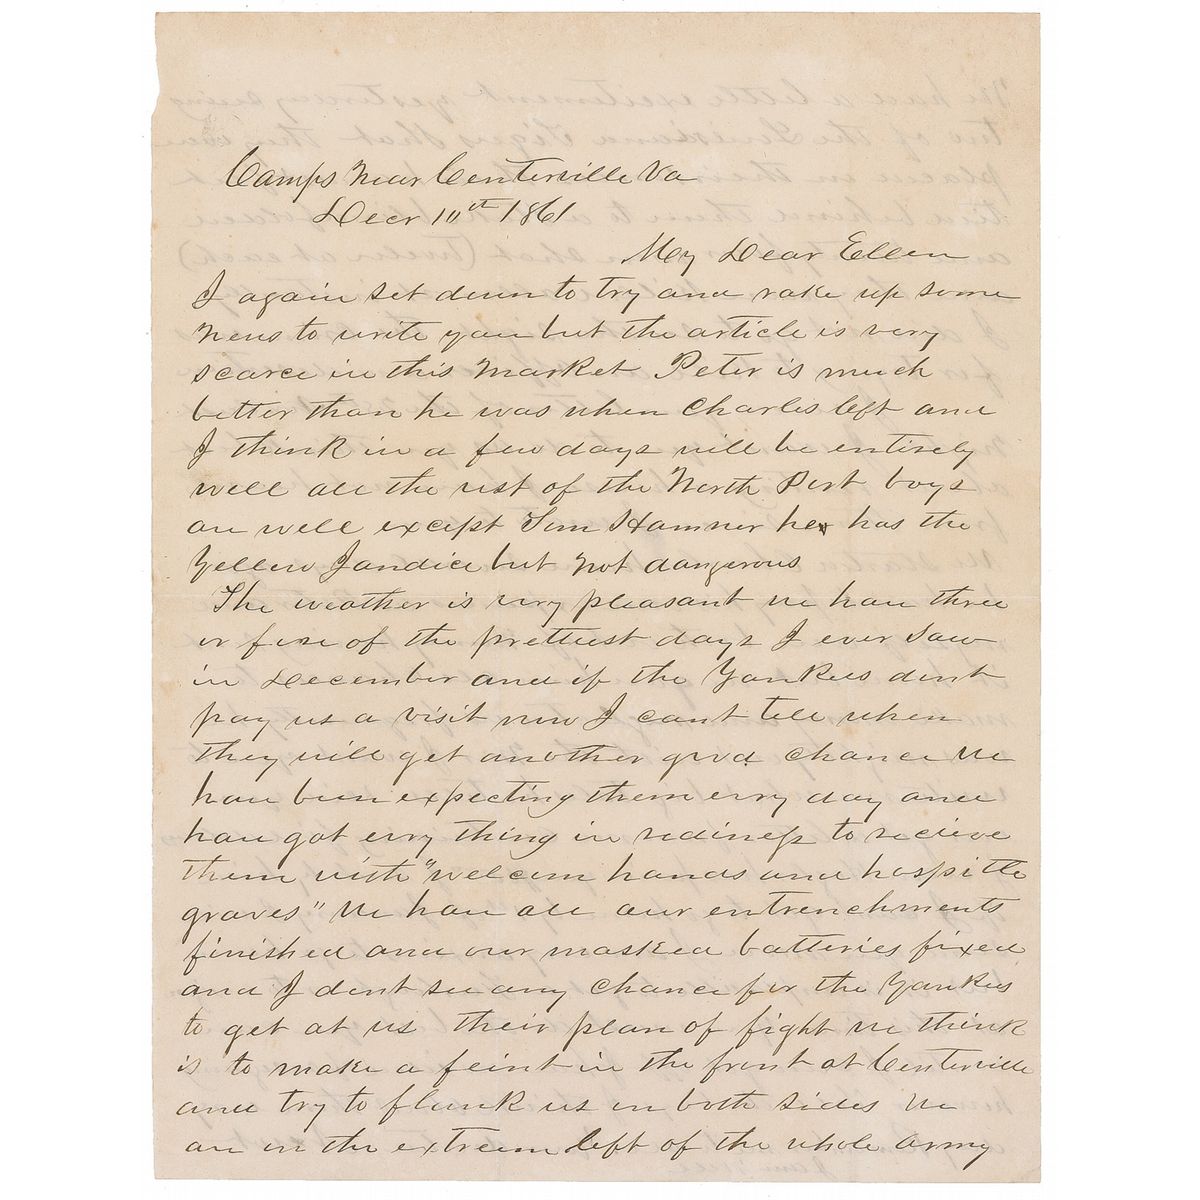 Camps Near Centerville Va
Decr 10th 1861
My Dear Ellen
I again set down to try and rake up some
News to write you but the article is very
scarce in this market Peter is much
better than he was when Charles left and
I think in a few days will be entirely
well all the rest of the North Port boys
are well except Tom Hamner he has the
Yellow Jandice but not dangerous
The weather is very pleasant we have three
or four of the prettiest days I ever saw
in December and if the Yankees dont
pay us a visit now I cant tell when
they will get another good chance We
have been expecting them evry day and
have got evry thing in rediness to recieve
them with "welcom hands and hospitle
graves" We have all our entrenchments
finished and our masked batteries fixed
and I dont see any chance for the Yankees
to get at us their plan of fight we think
is to make a feint in the front at Centerville
and try to flank us on both sides We
are on the extreem left of the whole army